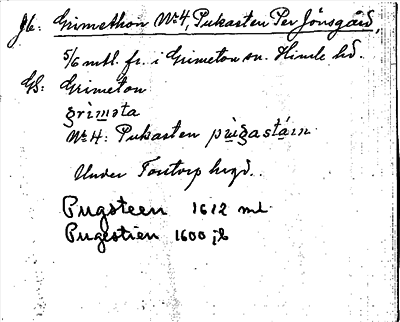 Jb: Grimethon № 4, Pukasten Per Jönsgård,
5/6 mtl. fr. i Grimeton sn. Himle hd.
GS: Grimeton
grìmeta
№ 4: Pukasten pùgastáin
Under Torstorp hvgd..
Pugsteen 1612 ml
Pugestien 1600 jb